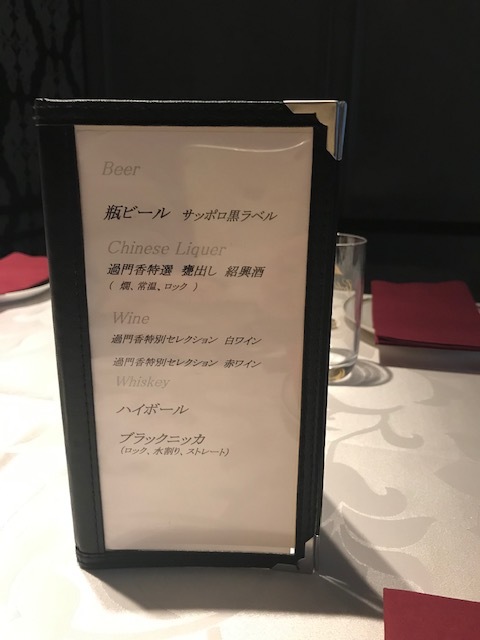 Beer
瓶ビール サッポロ黒ラベル
Chinese Liquer
過門香特選 甕出し 紹興酒
( 燗、常温、ロック )
Wine
過門香特別セレクション 白ワイン
過門香特別セレクション 赤ワイン
Whiskey
ハイボール
ブラックニッカ
(ロック、水割り、ストレート)